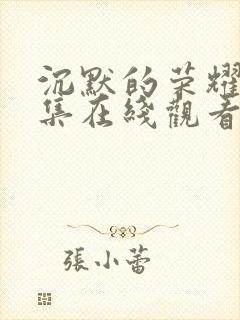 沉默的荣耀
集在綫觀看
張小蕾